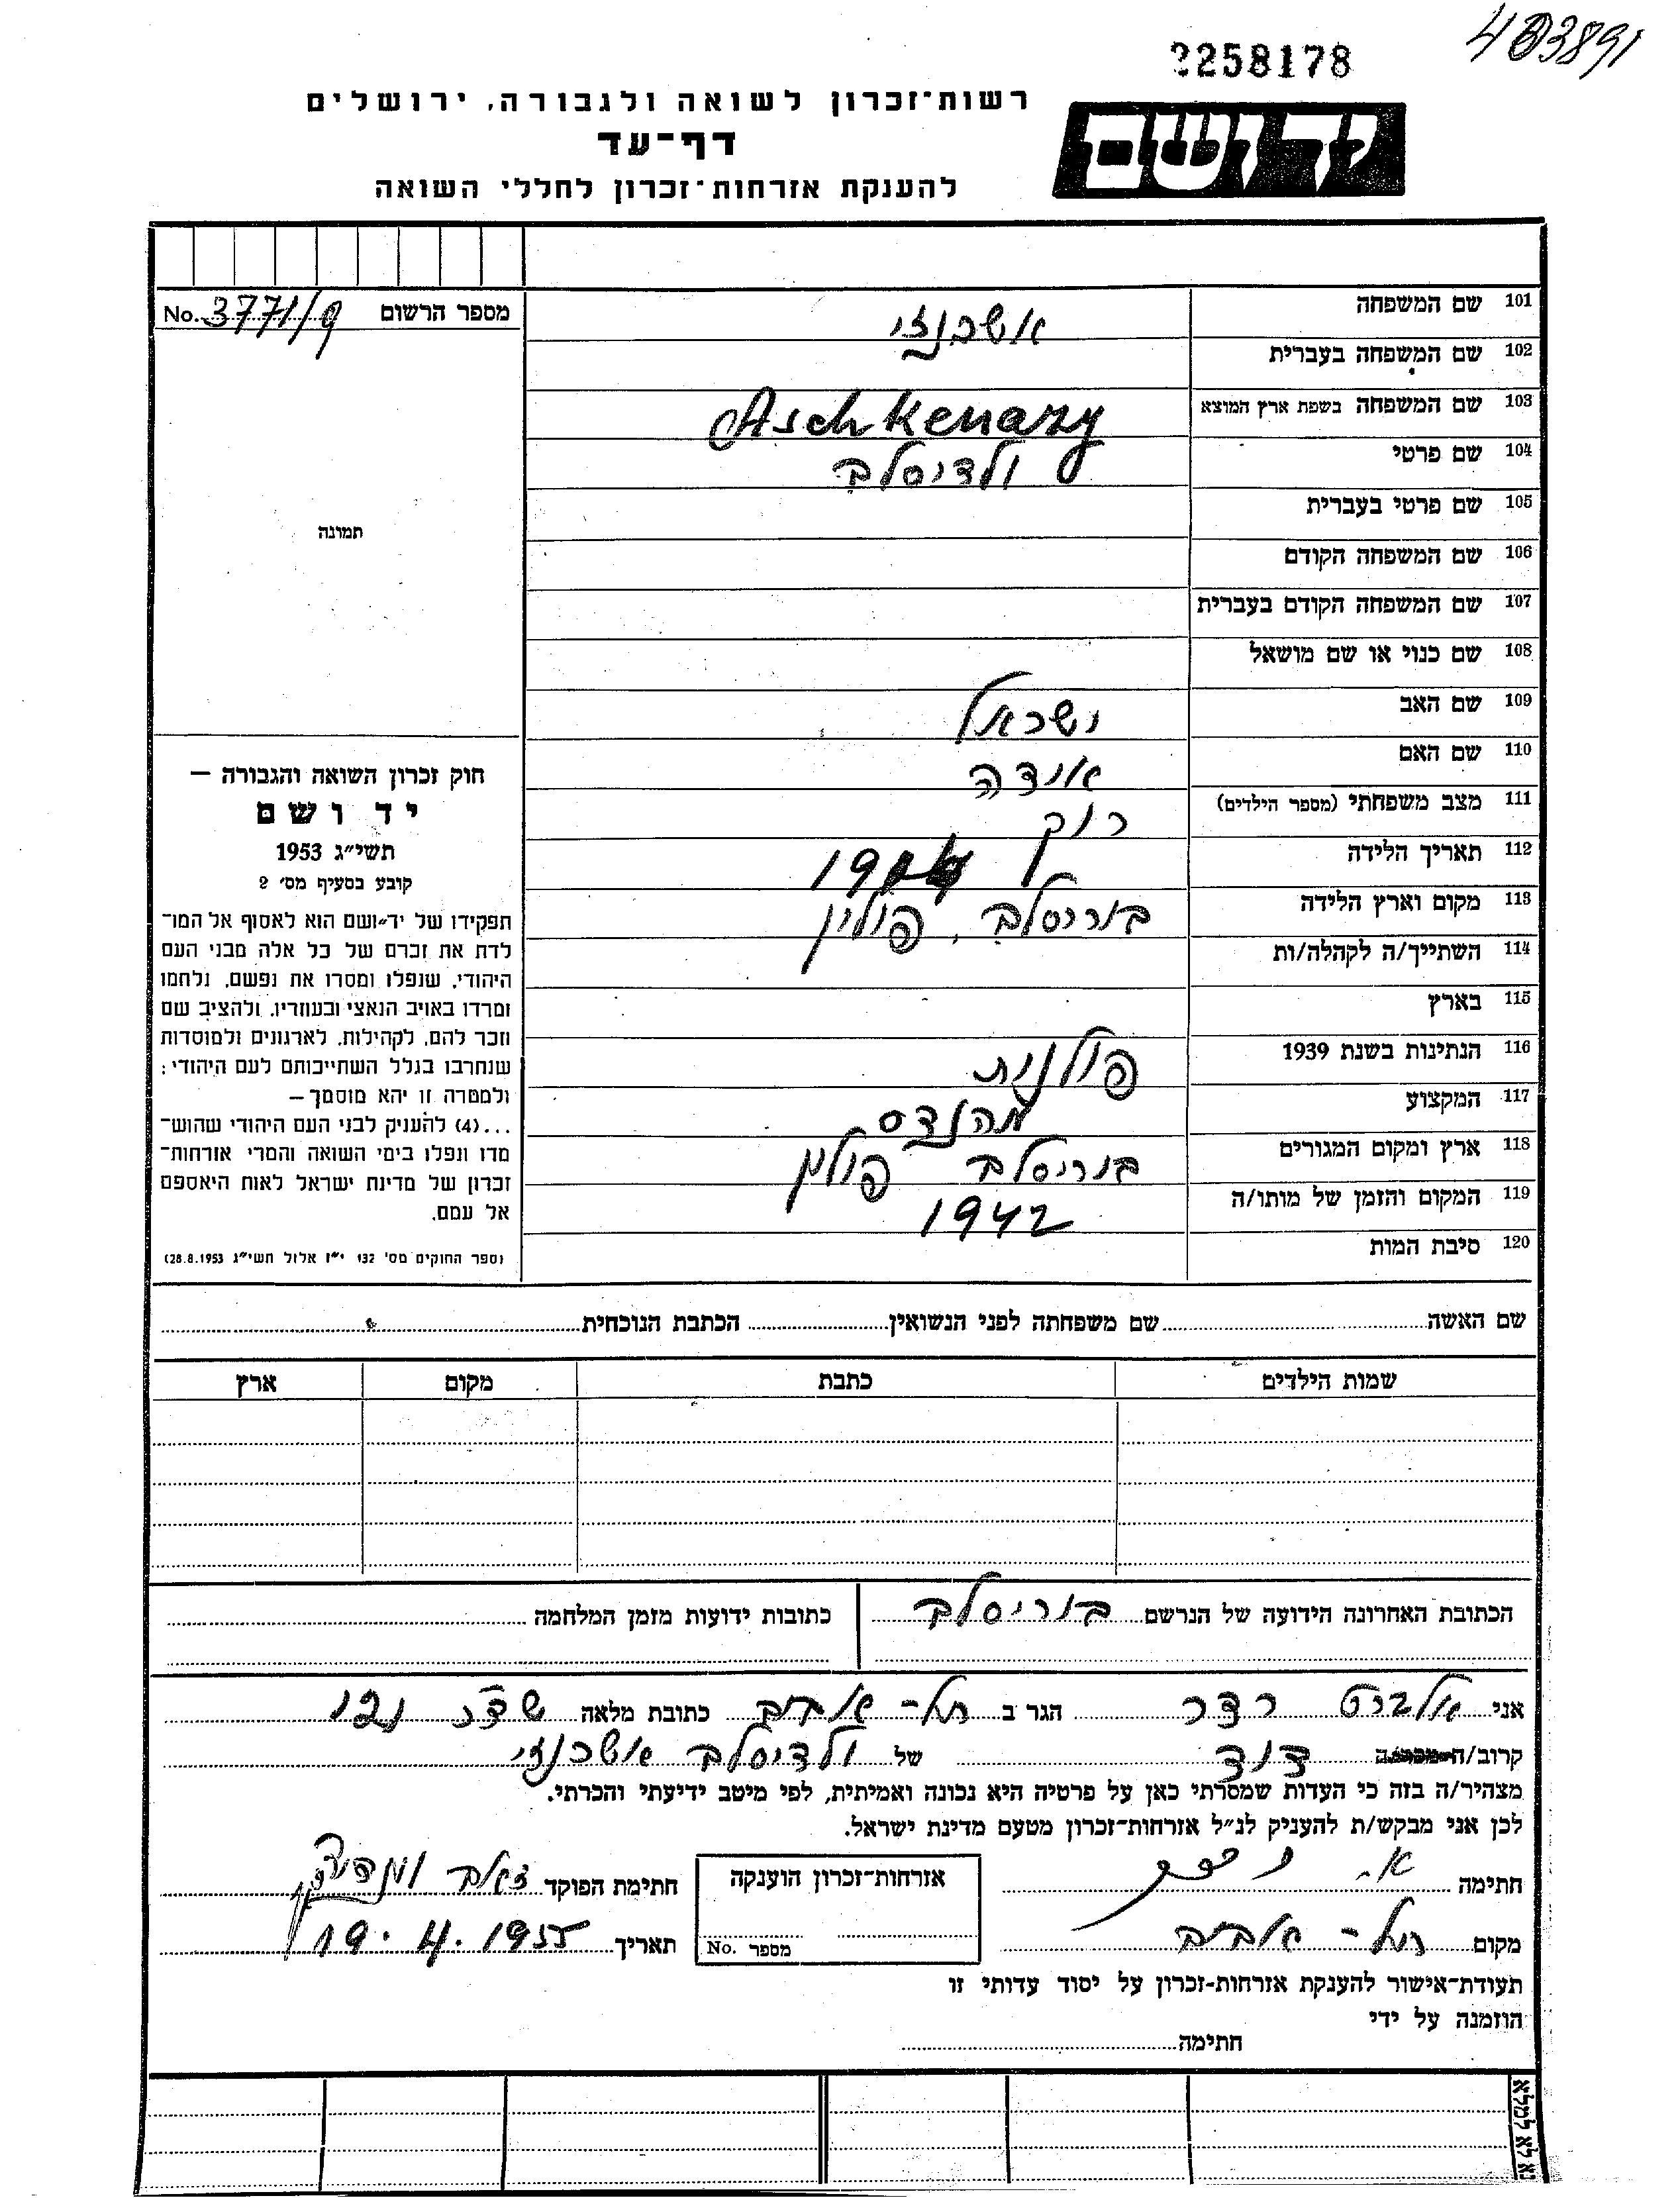 483891
2258178
רשות־זכרון לשואה ולגבורה, ירושלים
ידושם
דף־עד
להענקת אזרחות־זכרון לחללי השואה
מספר הרשום No. 3771/9
תמונה
101 שם המשפחה אשכנזי
102 שם המשפחה בעברית
103 שם המשפחה בשפת ארץ המוצא Aschkenazy
104 שם פרטי ולדיסלב
105 שם פרטי בעברית
106 שם המשפחה הקודם
107 שם המשפחה הקודם בעברית
108 שם כנוי או שם מושאל
109 שם האב ישראל
110 שם האם אידה
111 מצב משפחתי (מספר הילדים) רוק
112 תאריך הלידה
113 מקום וארץ הלידה בוריסלב, פולין
114 השתייך/ה לקהלה/ות
115 בארץ
116 הנתינות בשנת 1939 פולנית
117 המקצוע מהנדס
118 ארץ ומקום המגורים בוריסלב פולין
119 המקום והזמן של מותו/ה 1942
120 סיבת המות
חוק זכרון השואה והגבורה —
יד ושם
תשי״ג 1953
קובע בסעיף מס׳ 2
תפקידו של יד־ושם הוא לאסוף אל המו־
לדת את זכרם של כל אלה מבני העם
היהודי, שנפלו ומסרו את נפשם, נלחמו
ומרדו באויב הנאצי ובעוזריו, ולהציב שם
וזכר להם, לקהילות, לארגונים ולמוסדות
שנחרבו בגלל השתייכותם לעם היהודי;
ולמטרה זו יהא מוסמך —
...(4) להעניק לבני העם היהודי שהוש־
מדו ונפלו בימי השואה והמרי אזרחות־
זכרון של מדינת ישראל לאות היאספם
אל עמם.
(ספר החוקים מס׳ 132 י״ז אלול תשי״ג 28.8.1953)
שם האשה שם משפחתה לפני הנשואין הכתבת הנוכחית
שמות הילדים כתבת מקום ארץ
הכתובת האחרונה הידועה של הנרשם בוריסלב כתובות ידועות מזמן המלחמה
אני אלברט רדר הגר ב תל־אביב כתובת מלאה שד׳
קרוב/ה דוד של ולדיסלב אשכנזי
מצהיר/ה בזה כי העדות שמסרתי כאן על פרטיה היא נכונה ואמיתית, לפי מיטב ידיעתי והכרתי.
לכן אני מבקש/ת להעניק לנ״ל אזרחות־זכרון מטעם מדינת ישראל.
חתימה אזרחות־זכרון הוענקה חתימת הפוקד
מקום תל־אביב מספר No. תאריך 19.4.1955
תעודת־אישור להענקת אזרחות־זכרון על יסוד עדותי זו
הוזמנה על ידי
חתימה
נא לא למלא